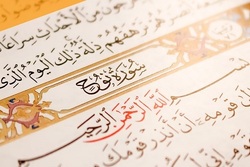 مِنَ ٱلْأَجْدَاثِ سِرَاعًا
تَرْهَقُهُمْ ذِلَّةٌ ذَٰلِكَ ٱلْيَوْمُ ٱلَّذِى
سُورَةُ نُوحٍ
ٱللَّهِ ٱلرَّحْمَٰنِ ٱلرَّحِيمِ
قَوْمِهِۦٓ أَنْ أَنذِرْ قَوْمَكَ